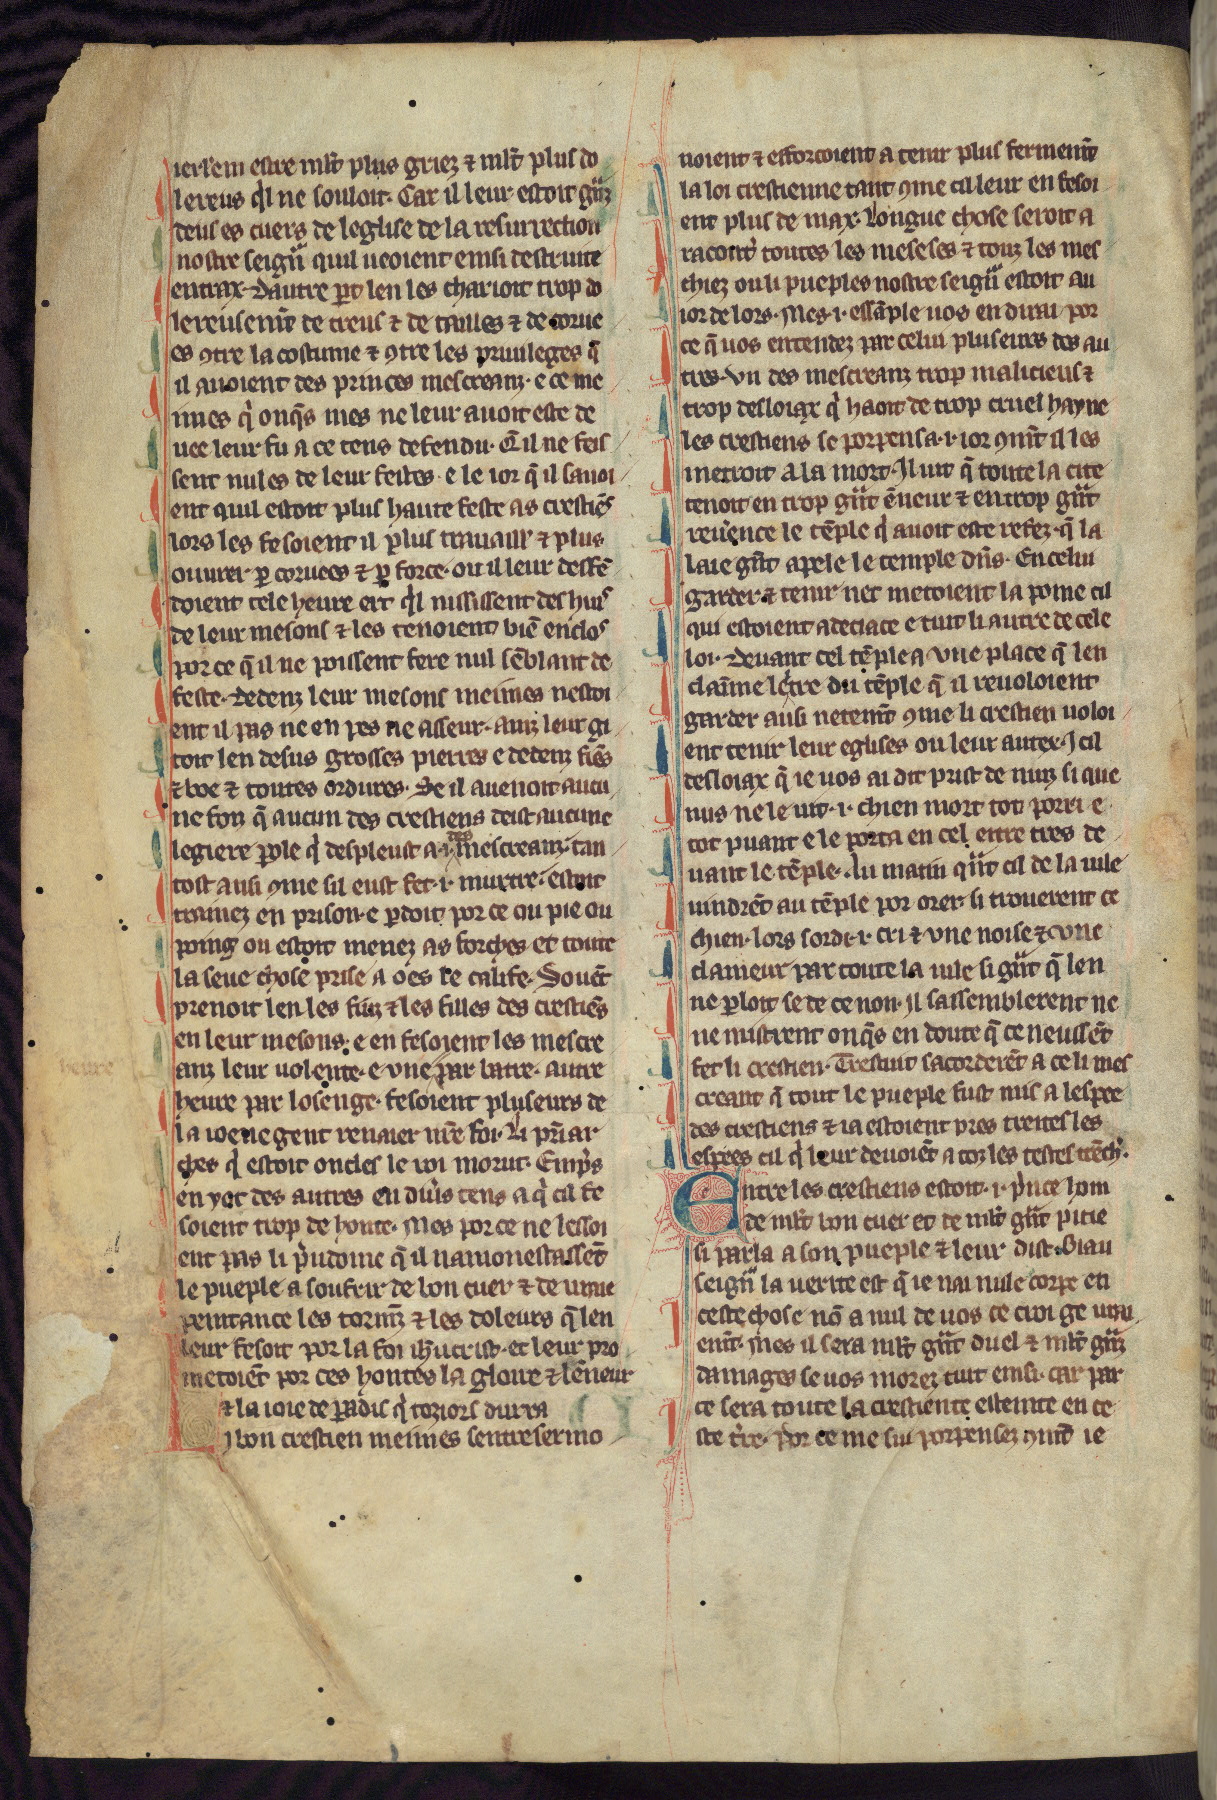 iersem estre mlt̃ plus griez ⁊ mlt̃ plus do
lereus q̓l ne souloit. Car il leur estoit gͣnz
deus es cuers de leglise de la resurrection
nostre seigñ quil ueoient ensi destruite
entrax. Dautre ꝑt len les chariott trop do
lereusem̃t de treus ⁊ de tailles ⁊ de corue
es ꝯtre la costume ⁊ ꝯtre les priuileges q̃
il auoient des princes mescreanz. e ce me
imes q̓ onq̃s mes ne leur auoit este de
uee leur fu a ce tens defendu. Q̃ il ne feis
sent nules de leur festes. e le ior q̃ il sauoi
ent quil estoit plus haute feste as crestiẽs
lors les fesoient il plus trauaill̓ ⁊ plus
ouurer ꝑ coruees ⁊ ꝑ force. ou il leur desfẽ
doient cele heure ert q̓l nississent des huis
de leur mesons ⁊ les tenoient biẽ enclos
por ce q̃ il ne poissent fere nul sẽblant de
feste. Dedenz leur mesons meimes nestoi
ent il pas ne en pes ne asseur. ainz leur gi
toit len desus grosses pierres e dedenz fiẽs
⁊ boe ⁊ toutes ordures. Se il auenoit aucu
ne foiz q̃ aucun des crestiens deist aucune
legiere ꝑole q̓ despleust a .i. des mescreanz. tan
tost ausi ꝯme sil eust fet .i. murtre. estoit
trainez en prison. e ꝑdoit por ce ou pie ou
poing ou estoit menez as forches. et toute
la seue chose prise a oes le calife. Souẽt
prenoit len les fiuz ⁊ les filles des crestiẽs
en leur mesons. e en fesoient les mescre
anz leur uolente. e vne par batre. autre
heure par losenge. fesoient pluseurs de
la ioenegent renaier nr̃e foi. Li pr̃iar
ches q̓ estoit oncles le roi morut. Emp̃s
en yot des autres en diu̾s tens a q̓ cil fe
soient trop de honte. Mes por ce ne lessoi
ent pas li p̓udome q̃ il namonestassẽt
le pueple a soufrir de bon cuer ⁊ de uraie
peintance les tormz̃ ⁊ les doleurs q̃ len
leur fesoit por la foi ih̃ucrist. et leur pro
metoiẽt por ces hontes la gloire ⁊ lẽneur
⁊ la ioie de ꝑadis q̓ toziors durra
I bon crestien meimes sentresermo
noient ⁊ efforcoient a tenir plus fermem̃t
la loi crestienne tant ꝯme cil leur en fesoi
ent plus de max. Longue chose seroit a
racont̾ toutes les meseses ⁊ touz les mes
chiez ou li pueples nostre seigñ estoit au
ior de lors. Mes .i. essãple uos en dirai por
ce q̃ uos entendez par celui pluseurs des au
tres. Vn des mescreanz trop malicieus ⁊
trop desloiax q̓ haoit de trop cruel hayne
les crestiens se porpensa .i. ior ꝯm̃t il les
metroit a la mort. Il uit q̃ toute la cite
tenoit en trop gͣnt ẽneur ⁊ en trop gͣnt
reu̾ence le tẽple q̓ auoit este refez. q̃ la
laie gẽt apele le temple dñs. En celui
garder ⁊ tenir net metoient la pome cil
qui estoient adeciace e tuit li autre de cele
loi. Deuant cel tẽple a vne place q̃ len
claĩme lẽtre du tẽple q̃ il reuoloient
garder ausi netem̃t ꝯme li crestien uoloi
ent tenir leur eglises ou leur autex. I cil
desloiax q̃ ie uos ai dit prist de nuiz si que
nus ne le uit .i. chien mort tot porri e
tot puant e le porta en cel entre tres de
uant le tẽple. Au matin qͣnt cil de la uile
uindrẽt au tẽple por orer. si trouerent ce
chien. lors sordi .i. cri ⁊ vne noise ⁊ vne
clameur par toute la uile si gͣnt q̃ len
ne ꝑloit se de ce non. Il sassemblerent ne
ne mistrent onq̃s en doute q̃ ce neussẽt
fet li crestien. Trestuit sacorderẽt a ce li mes
creant q̃ tout le pueple fust mis a lespee
des crestiens ⁊ ia estoient pres treites les
espees cil q̓ leur deuoiẽt a toz les testes trẽch̾.
Entre les crestiens estoit .i. p̓nce hom
de mlt̃ bon cuer et de mlt̃ gͣnt pitie
si parla a son pueple ⁊ leur dist. Biau
seigñ la uerite est q̃ ie nai nule corpe en
ceste chose nõ a nul de uos ce croi ge urai
em̃t. Mes il sera mlt̃ gͣnt duel ⁊ mlt̃ gͣnz
damages se uos morez tuit ensi. car par
ce sera toute la crestiente esteinte en ce
ste t̾re. Por ce me sui porpensez ꝯm̃t ie
heure